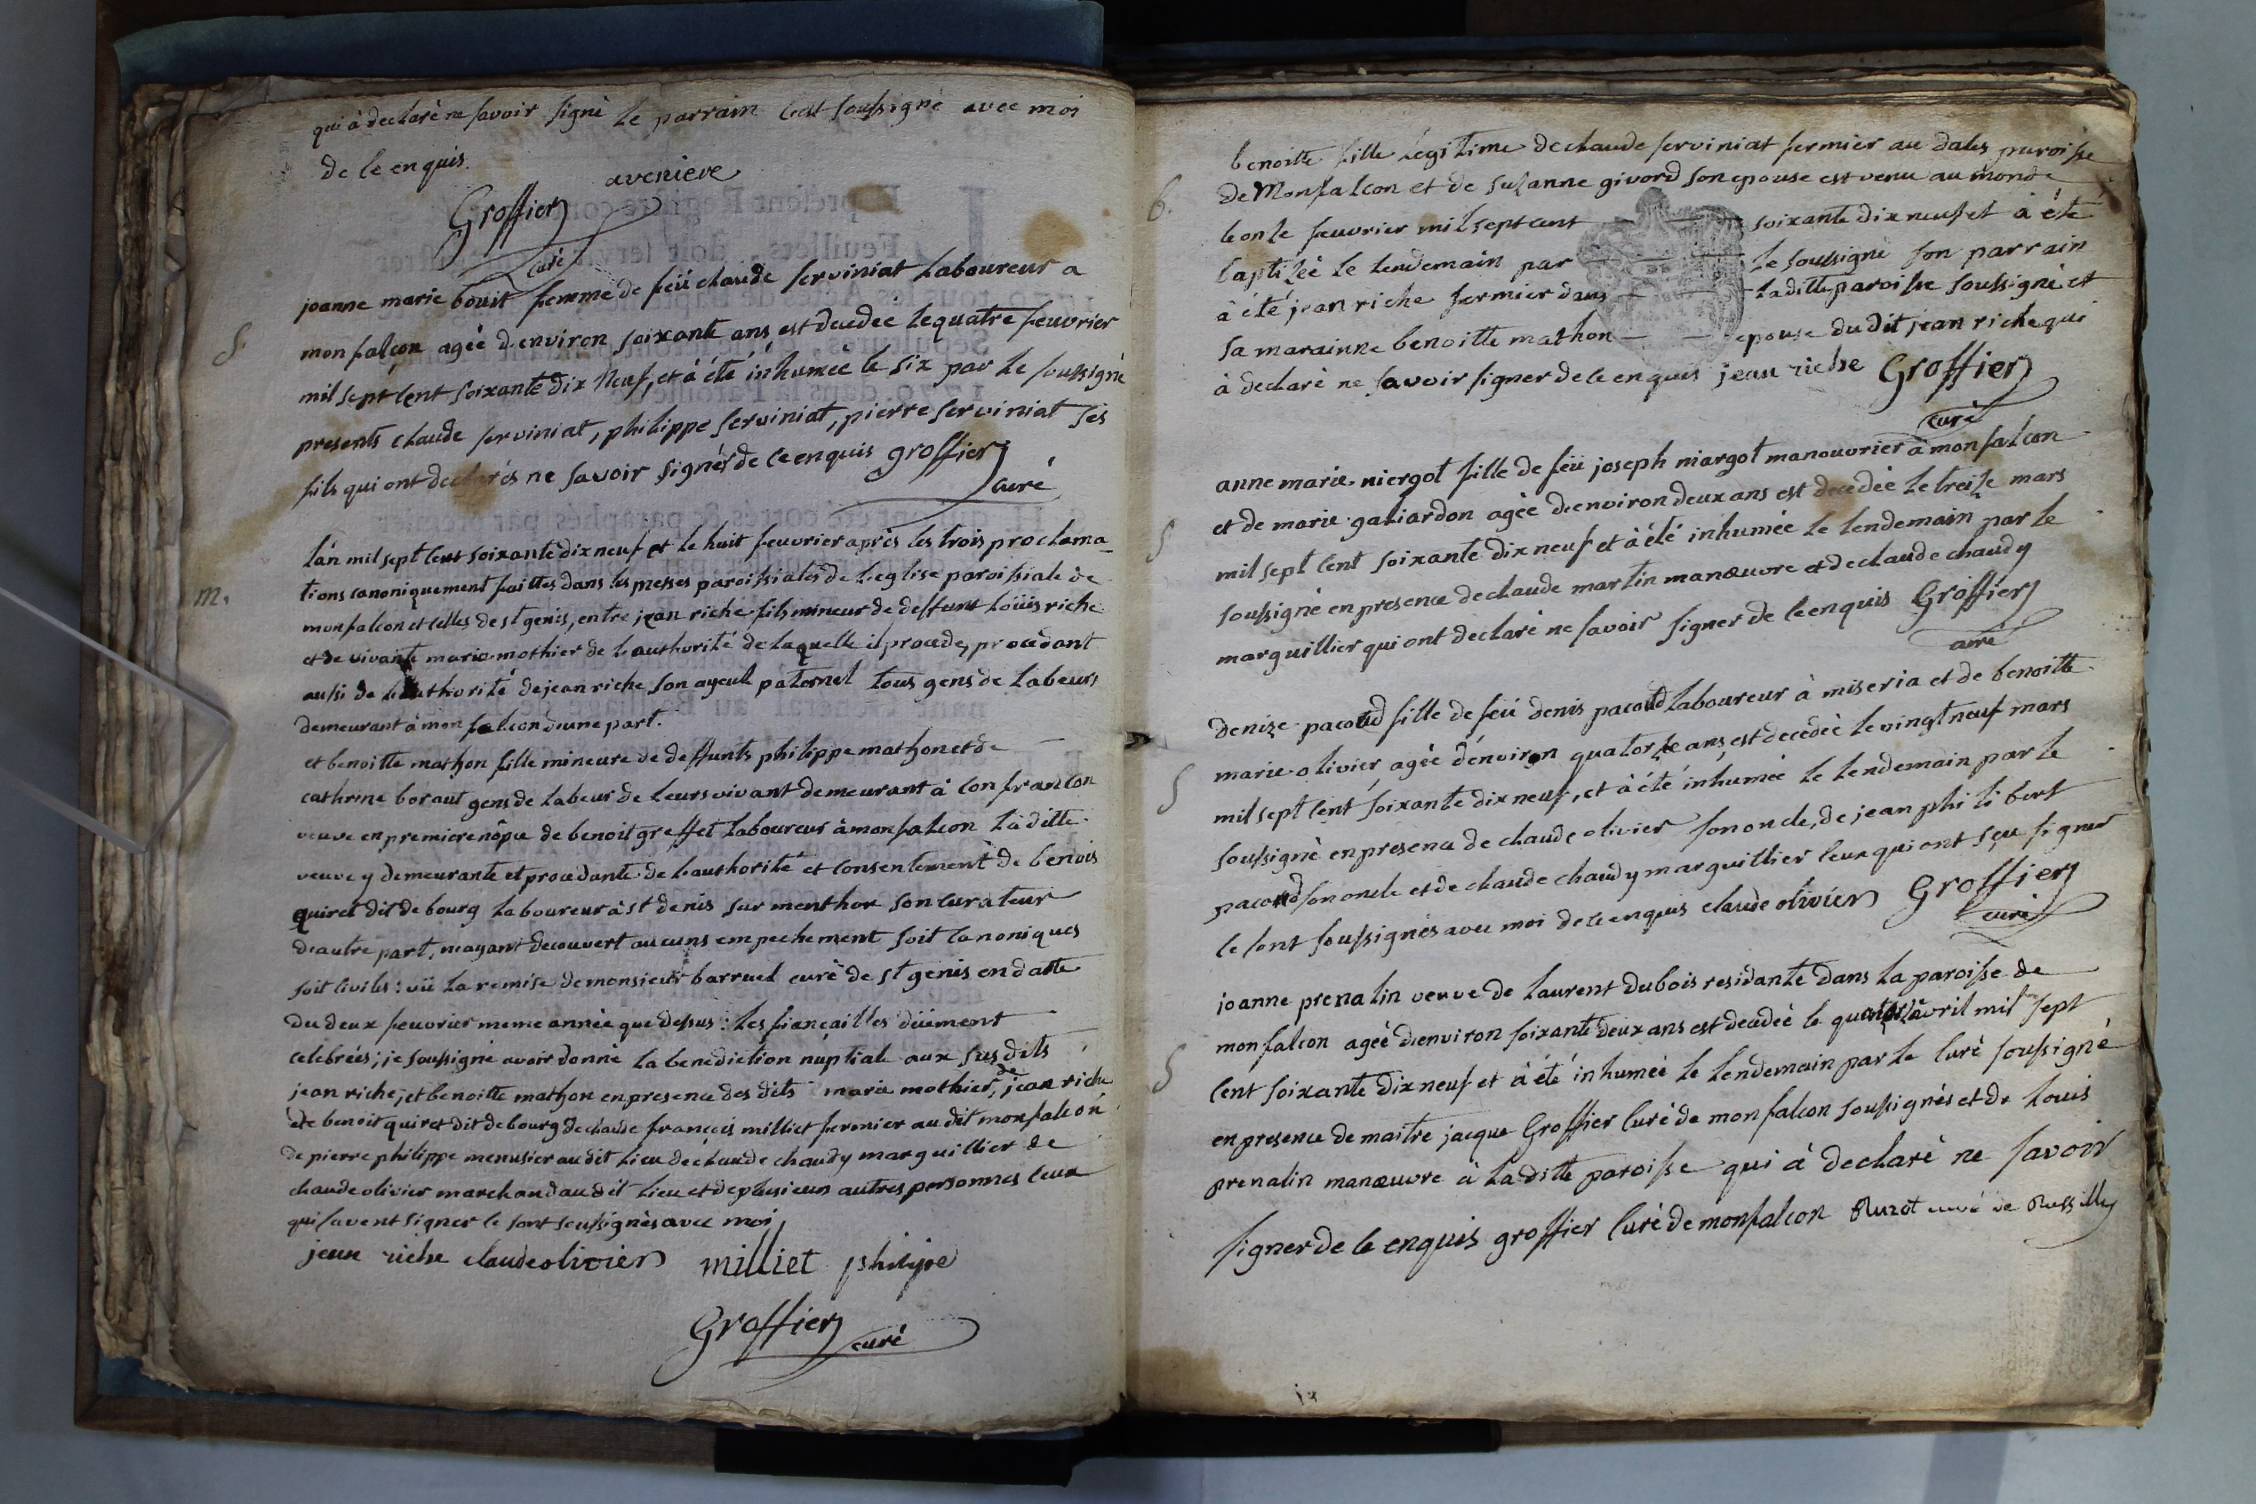 qui à declaré ne savoir signé le parrain c'est soussigné avec moi
de ce enquis.
aveniere
Groffier
curé
S.
joanne marie bouit femme de feü claude serviniat laboureur a
monfalçon agée d'environ soixante ans, est decedée le quatre feuvrier
mil sept cent soixante dix neuf, et à été inhumée le six par le soussigné
presents claude serviniat, philippe serviniat, pierre serviniat ses
fils qui ont declarés ne savoir signér de ce enquis groffier
curé
m.
l'an mil sept cent soixante dix neuf et le huit feuvrier après les trois proclama-
tions canoniquement faittes dans les messes paroissiales de l'eglise paroissiale de
monfalcon et celles de st genis, entre jean riche fils mineur de deffunt loüis riche
et de vivante marie mothier de l'authorité de laquelle il procede, procedant
aussi de l'authorité de jean riche son ayeul paternel tous gens de labeurs
demeurant à monfalcon d'une part.
et benoitte mathon fille mineure de deffunts philippe mathon et de
cathrine boraut gens de labeur de leurs vivant demeurant à confrancon
veuve en premiere nôpce de benoit greffet laboureur à monfalcon la ditte
veuve y demeurante et procedante de l'authorité et consentement de benois
quiret dit de bourg laboureur à st denis sur menthon son curateur
d'autre part, n'ayant decouvert aucuns empechement soit canoniques
soit civiles: vü la remise de monsieur barruel curé de st genis en datte
du deux feuvrier meme année que dessus: les fiançailles düement
celebrées; je soussigné avoir donné la benediction nuptiale aux susdits
jean riche, et benoitte mathon en presence des dits marie mothier, de jean riche
de benoit quiret dit de bourg de claude françois milliet fermier au dit monfalcon
de pierre philippe menusier au dit lieu de claude chaudy marguillier de
claude olivier marchand au dit lieu et de plusieurs autres personnes ceux
qui savent signer se sont soussignés avec moi
jean riche claude olivier milliet philipe
Groffier
curé
b.
benoitte fille légitime de claude serviniat fermier au dales paroisse
de Monfalcon et de suzanne givord son epouse est venu au monde
le onze feuvrier mil sept cent soixante dix neuf et à été
baptizée le lendemain par le soussigné son parrain
à été jean riche fermier dans la ditte paroisse soussigné et
sa marainne benoitte mathon epouse du dit jean riche qui
à declaré ne savoir signer de ce enquis jean riche Groffier
curé
S
anne marie niergot fille de feü joseph niargot manouvrier à monfalcon
et de marie galiardon agée d'environ deux ans est decedée le treize mars
mil sept cent soixante dix neuf et à été inhumée le lendemain par le
soussigné en presence de claude martin manœuvre et de claude chaudy
marguillier qui ont declaré ne savoir signer de ce enquis Groffier
curé
S
denize pacoud fille de feü denis pacoud laboureur à miseria et de benoitte
marie olivier, agée d'environ quatorze ans, est decedée le vingt neuf mars
mil sept cent soixante dix neuf, et à été inhumée le lendemain par le
soussigné en presence de claude olivier son oncle, de jean philibert
pacoud son oncle et de claude chaudy marguillier ceux qui ont sçu signer
se sont soussignés avec moi de ce enquis claude olivier Groffier
curé
S
joanne prenalin veuve de laurent dubois residante dans la paroisse de
monfalcon agée d'environ soixante deux ans est decedée le avril mil sept
cent soixante dix neuf et à été inhumée le lendemain par le curé soussigné
en presence de maitre jacque Groffier curé de monfalcon soussignés et de louis
prenalin manœuvre à la ditte paroisse qui à declaré ne savoir
signer de ce enquis groffier curé de monfalcon curé de